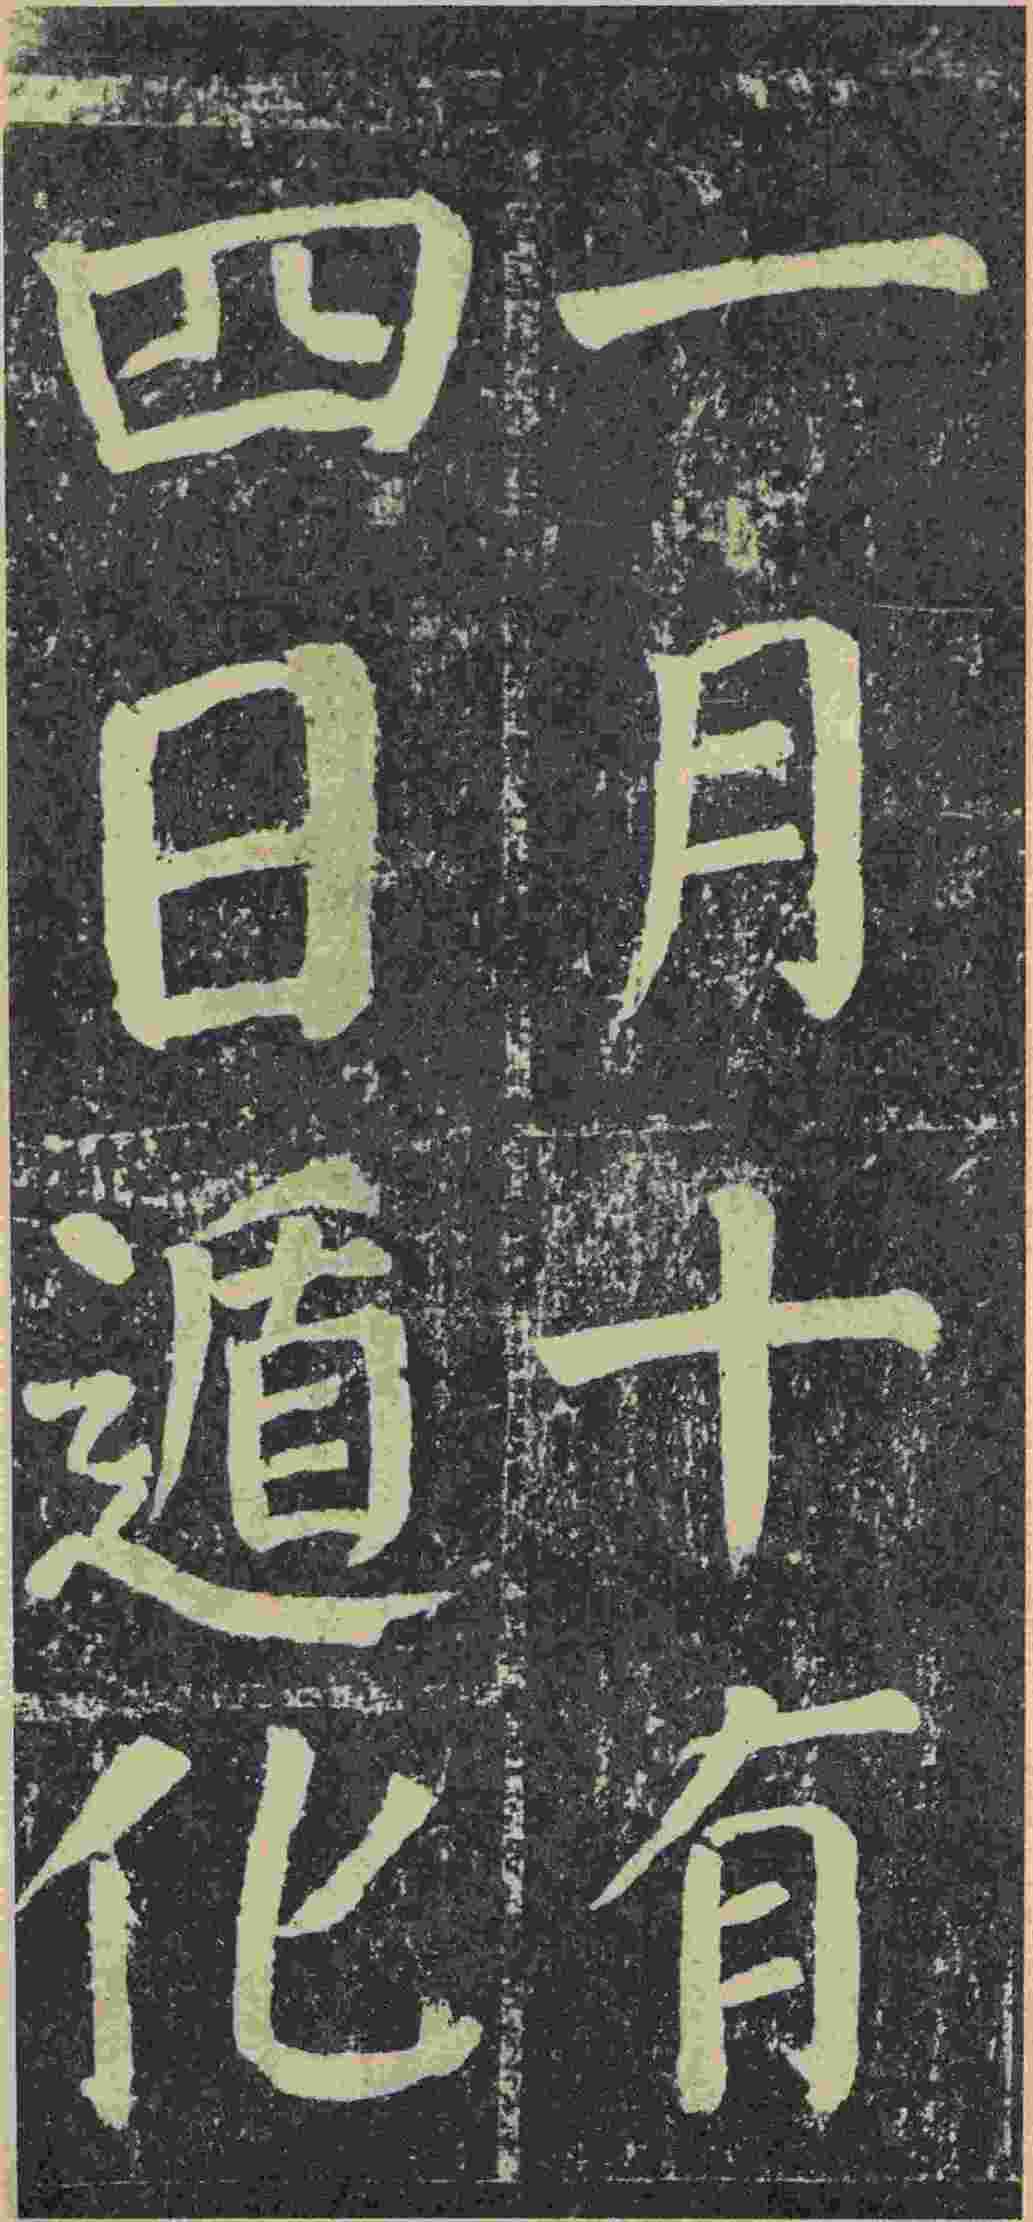 一月十有
四日遁化